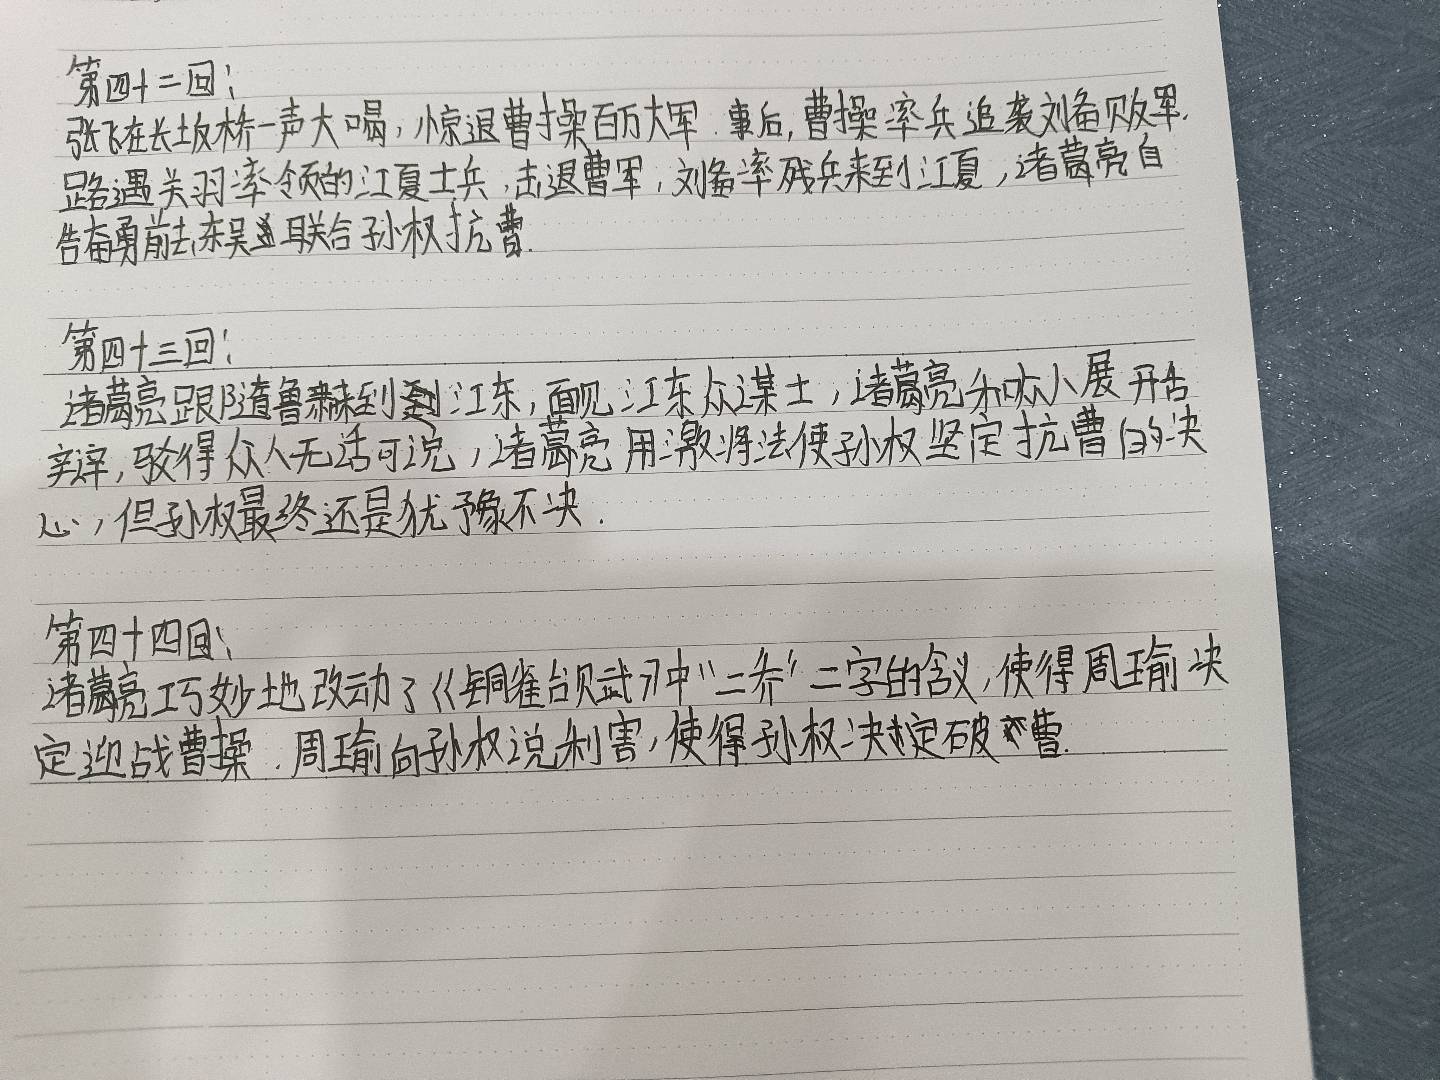 第四十二回：
张飞在长坂桥一声大喝，惊退曹操百万大军．事后，曹操率兵追袭刘备败军．
路遇关羽率领的江夏士兵，击退曹军，刘备率残兵来到江夏，诸葛亮自
告奋勇前去东吴联合孙权抗曹．
第四十三回：
诸葛亮跟随鲁肃到江东，面见江东众谋士，诸葛亮和众人展开舌
辩，驳得众人无话可说，诸葛亮用激将法使孙权坚定抗曹的决
心，但孙权最终还是犹豫不决．
第四十四回：
诸葛亮巧妙地改动了《铜雀台赋》中“二乔”二字的含义，使得周瑜决
定迎战曹操．周瑜向孙权说利害，使得孙权决定破曹．